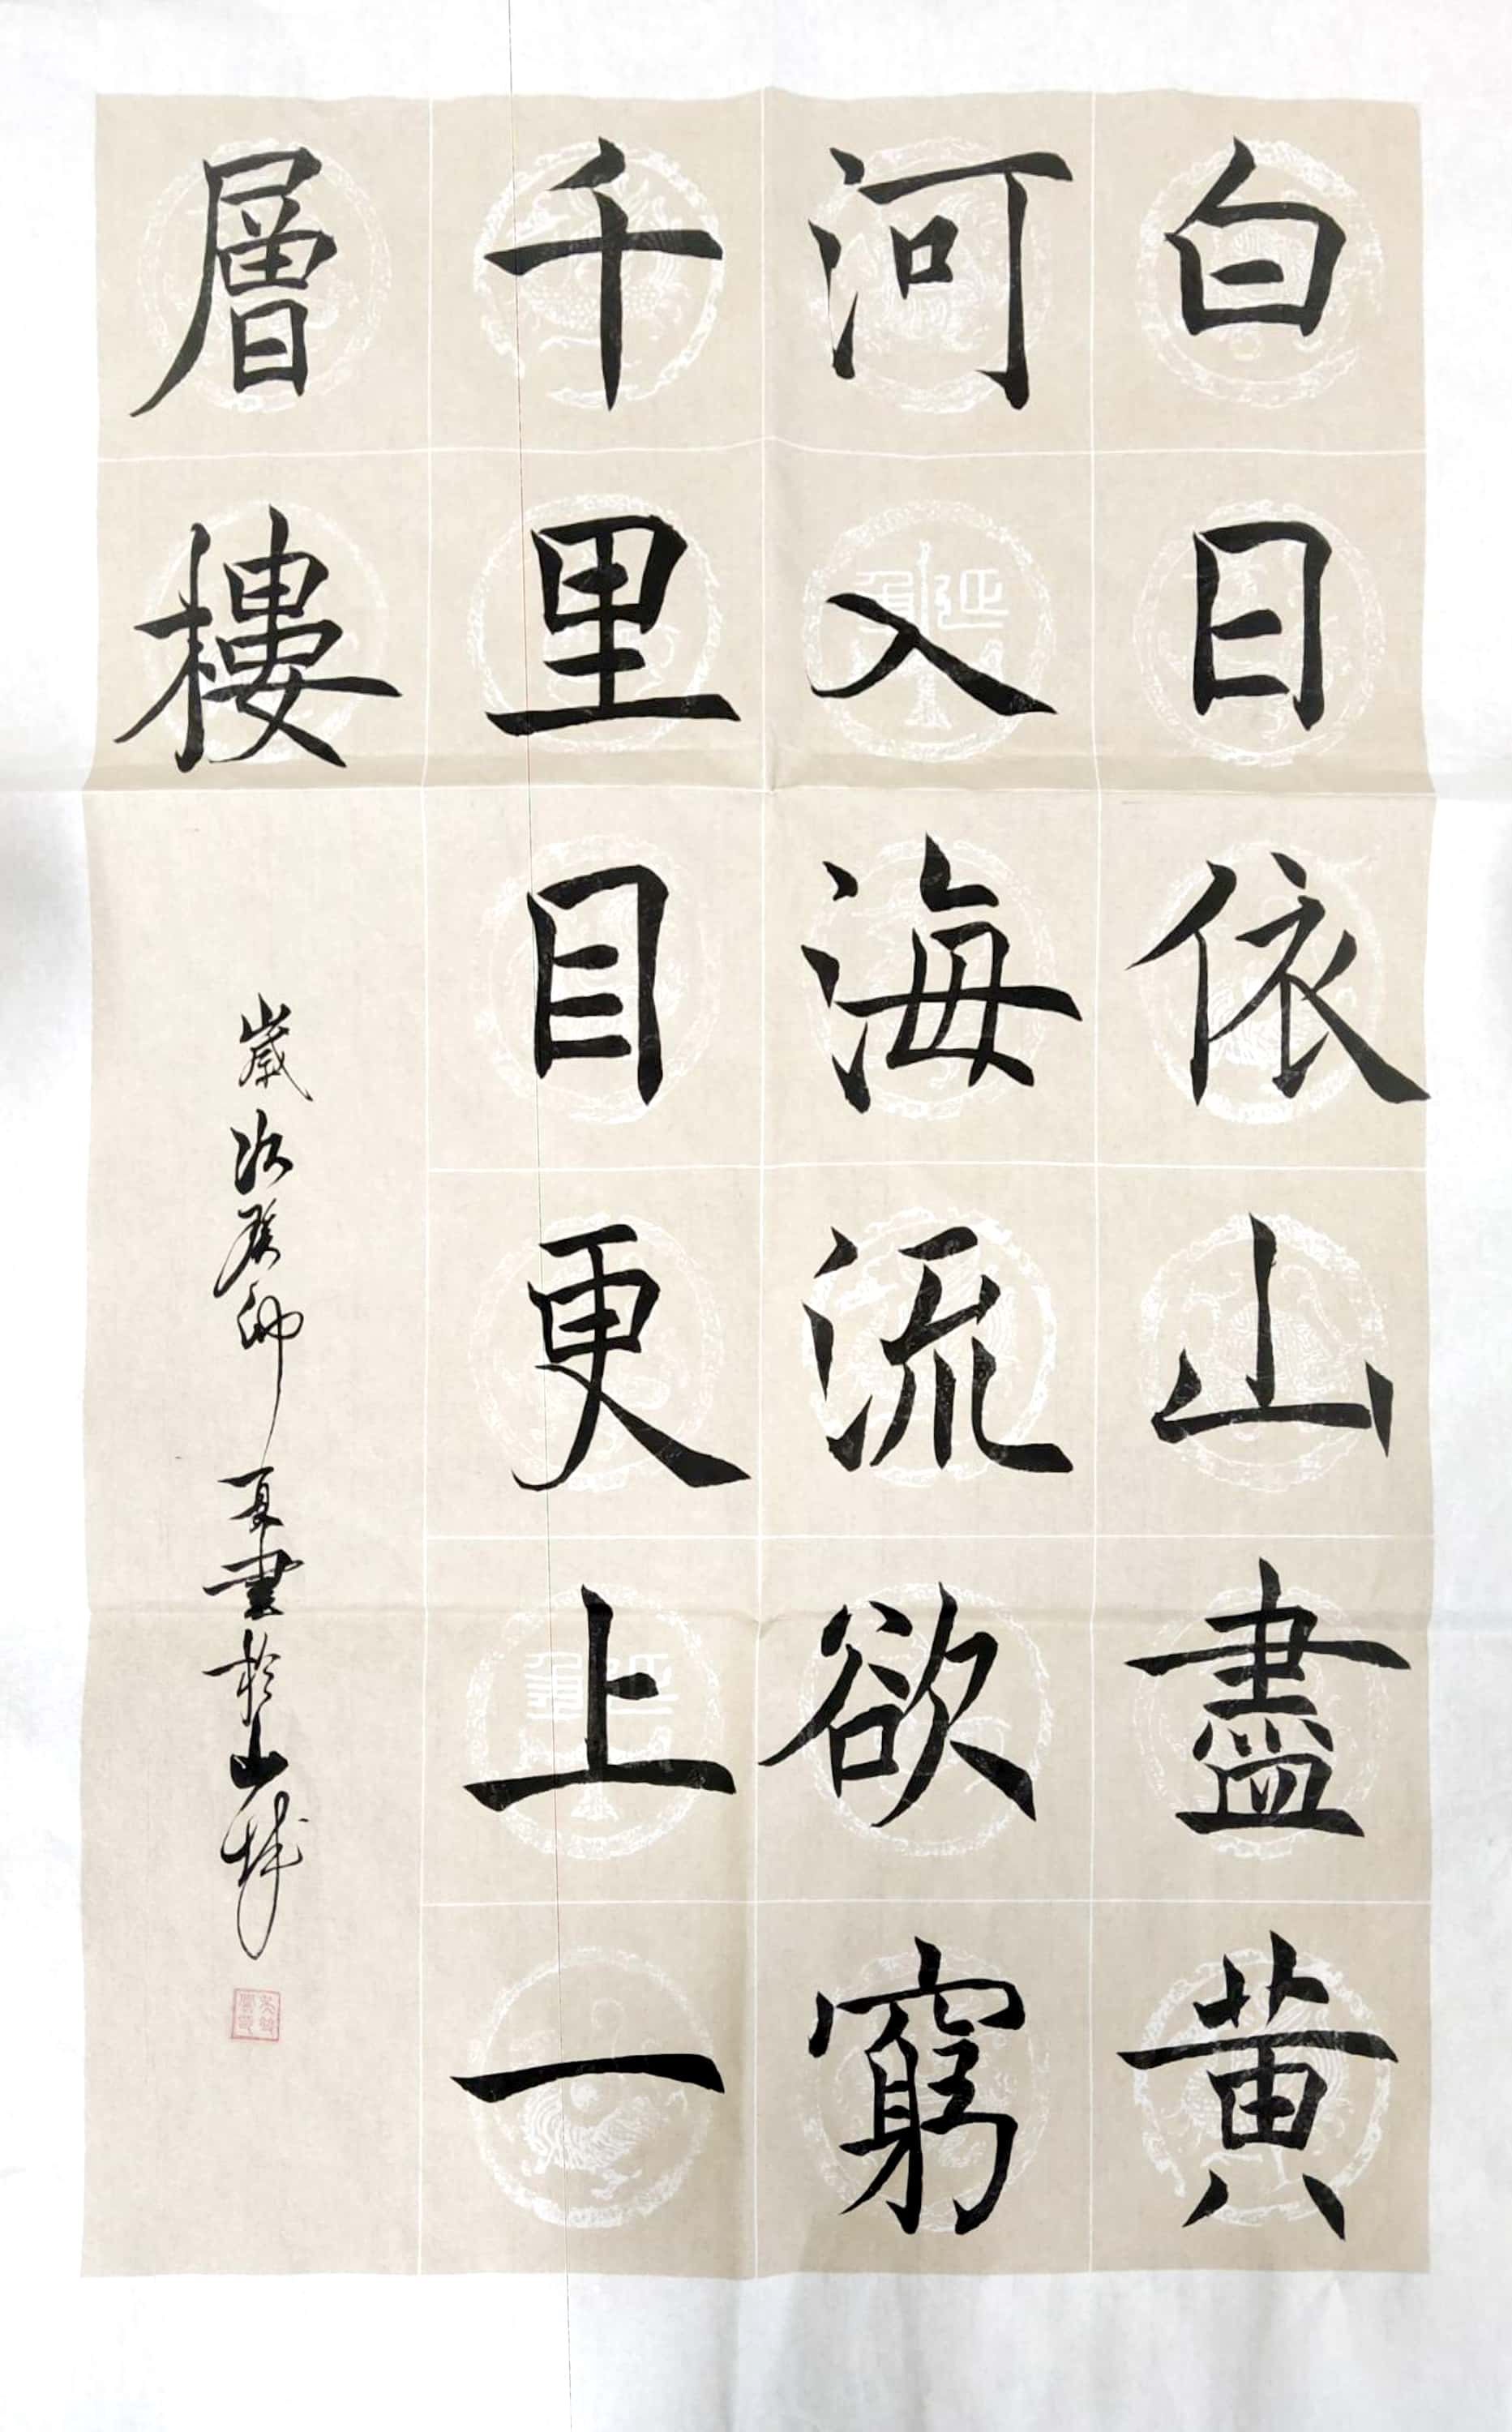 白日依山盡黄
河入海流欲窮
千里目更上一
層樓
歲次癸卯夏書於山城